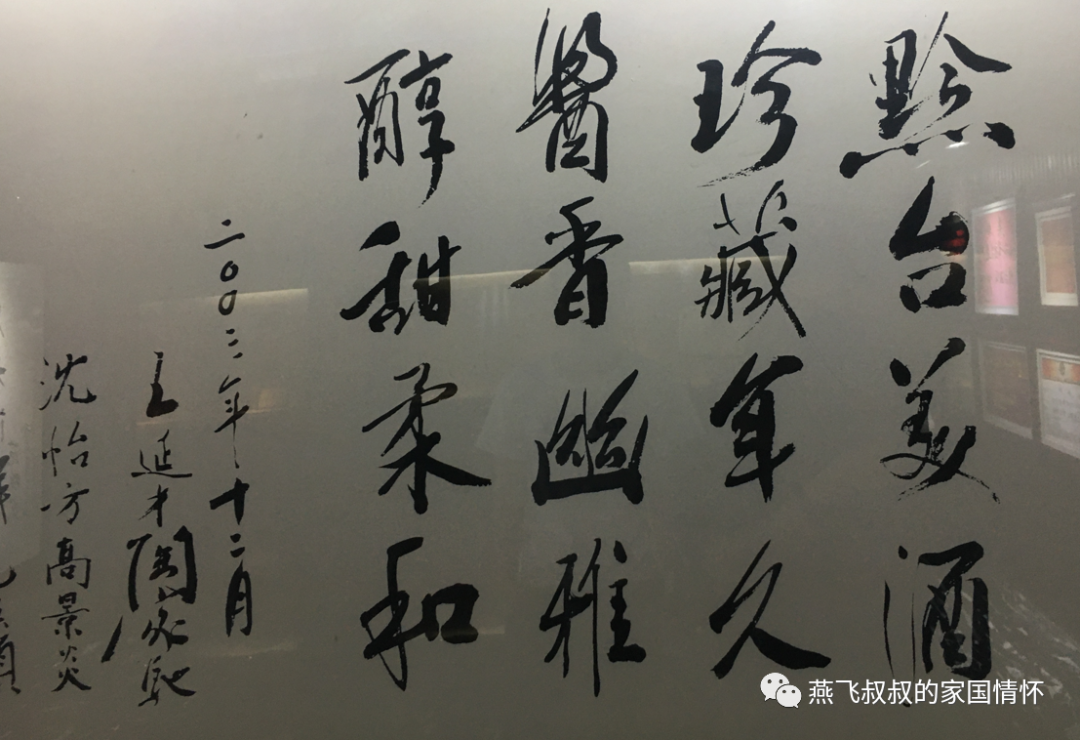 黔台美酒
珍藏年久
醬香幽雅
醇甜柔和
二〇〇三年十二月
王延才 陶家馳
沈怡方 高景炎
燕飞叔叔的家国情怀